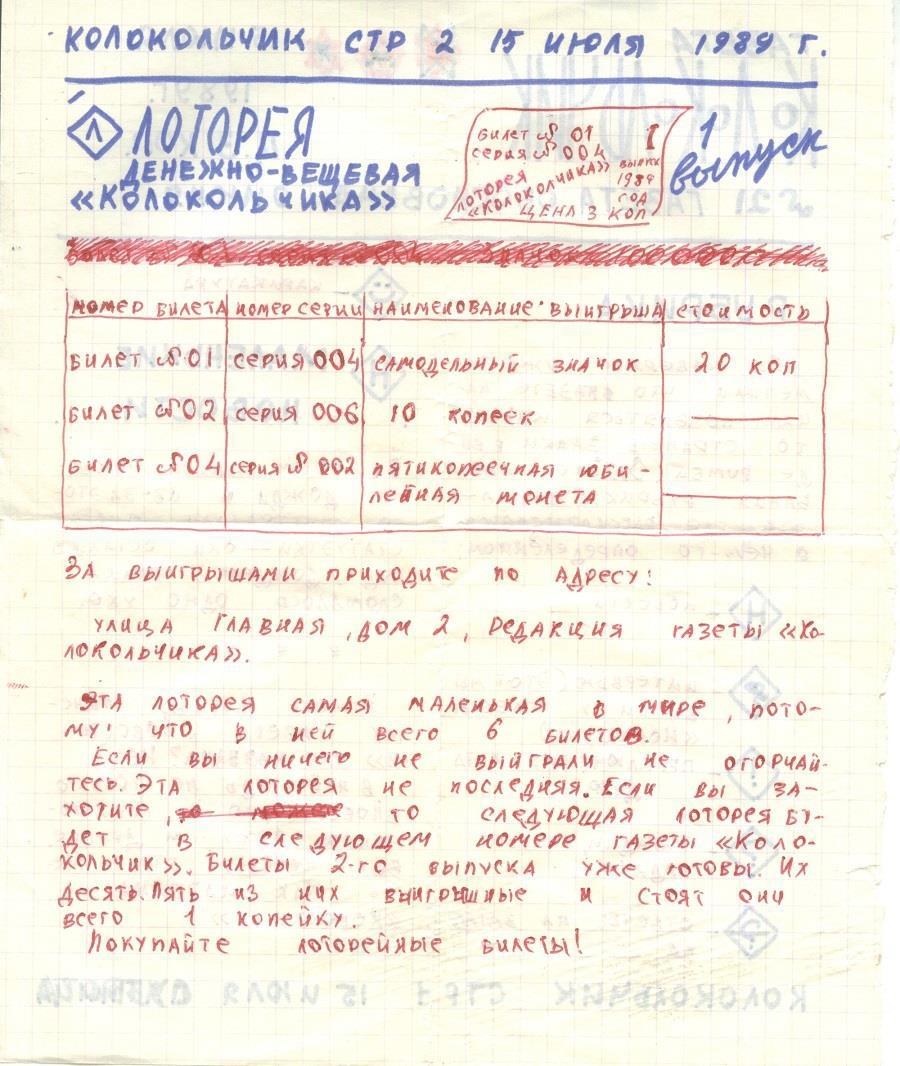 КОЛОКОЛЬЧИК СТР 2 15 ИЮЛЯ 1989 Г.
Л ЛОТОРЕЯ
ДЕНЕЖНО-ВЕЩЕВАЯ
«КОЛОКОЛЬЧИКА»
БИЛЕТ № 01 I
СЕРИЯ № 004
ВЫПУСК
ЛОТОРЕЯ 1989
«КОЛОКОЛЧИКА» ГОД
ЦЕНА 3 КОП
1
ВЫПУСК
НОМЕР БИЛЕТА НОМЕР СЕРИИ НАИМЕНОВАНИЕ ВЫИГРЫША СТОИМОСТЬ
БИЛЕТ №01 СЕРИЯ 004 САМОДЕЛЬНЫЙ ЗНАЧОК 20 КОП
БИЛЕТ №02 СЕРИЯ 006 10 КОПЕЕК
БИЛЕТ №04 СЕРИЯ № 002 ПЯТИКОПЕЕЧНАЯ ЮБИ-
ЛЕЙНАЯ МОНЕТА
ЗА ВЫИГРЫШАМИ ПРИХОДИТЕ ПО АДРЕСУ:
УЛИЦА ГЛАВНАЯ, ДОМ 2, РЕДАКЦИЯ ГАЗЕТЫ «КО-
ЛОКОЛЬЧИКА».
ЭТА ЛОТОРЕЯ САМАЯ МАЛЕНЬКАЯ В МИРЕ, ПОТО-
МУ ЧТО В НЕЙ ВСЕГО 6 БИЛЕТОВ.
ЕСЛИ ВЫ НИЧЕГО НЕ ВЫЙГРАЛИ НЕ ОГОРЧАЙ-
ТЕСЬ. ЭТА ЛОТОРЕЯ НЕ ПОСЛЕДНЯЯ. ЕСЛИ ВЫ ЗА-
ХОТИТЕ, ТО СЛЕДУЮЩАЯ ЛОТОРЕЯ БУ-
ДЕТ В СЛЕДУЮЩЕМ НОМЕРЕ ГАЗЕТЫ «КОЛО-
КОЛЬЧИК». БИЛЕТЫ 2-ГО ВЫПУСКА УЖЕ ГОТОВЫ. ИХ
ДЕСЯТЬ. ПЯТЬ ИЗ НИХ ВЫИГРЫШНЫЕ И СТОЯТ ОНИ
ВСЕГО 1 КОПЕЙКУ.
ПОКУПАЙТЕ ЛОТОРЕЙНЫЕ БИЛЕТЫ!